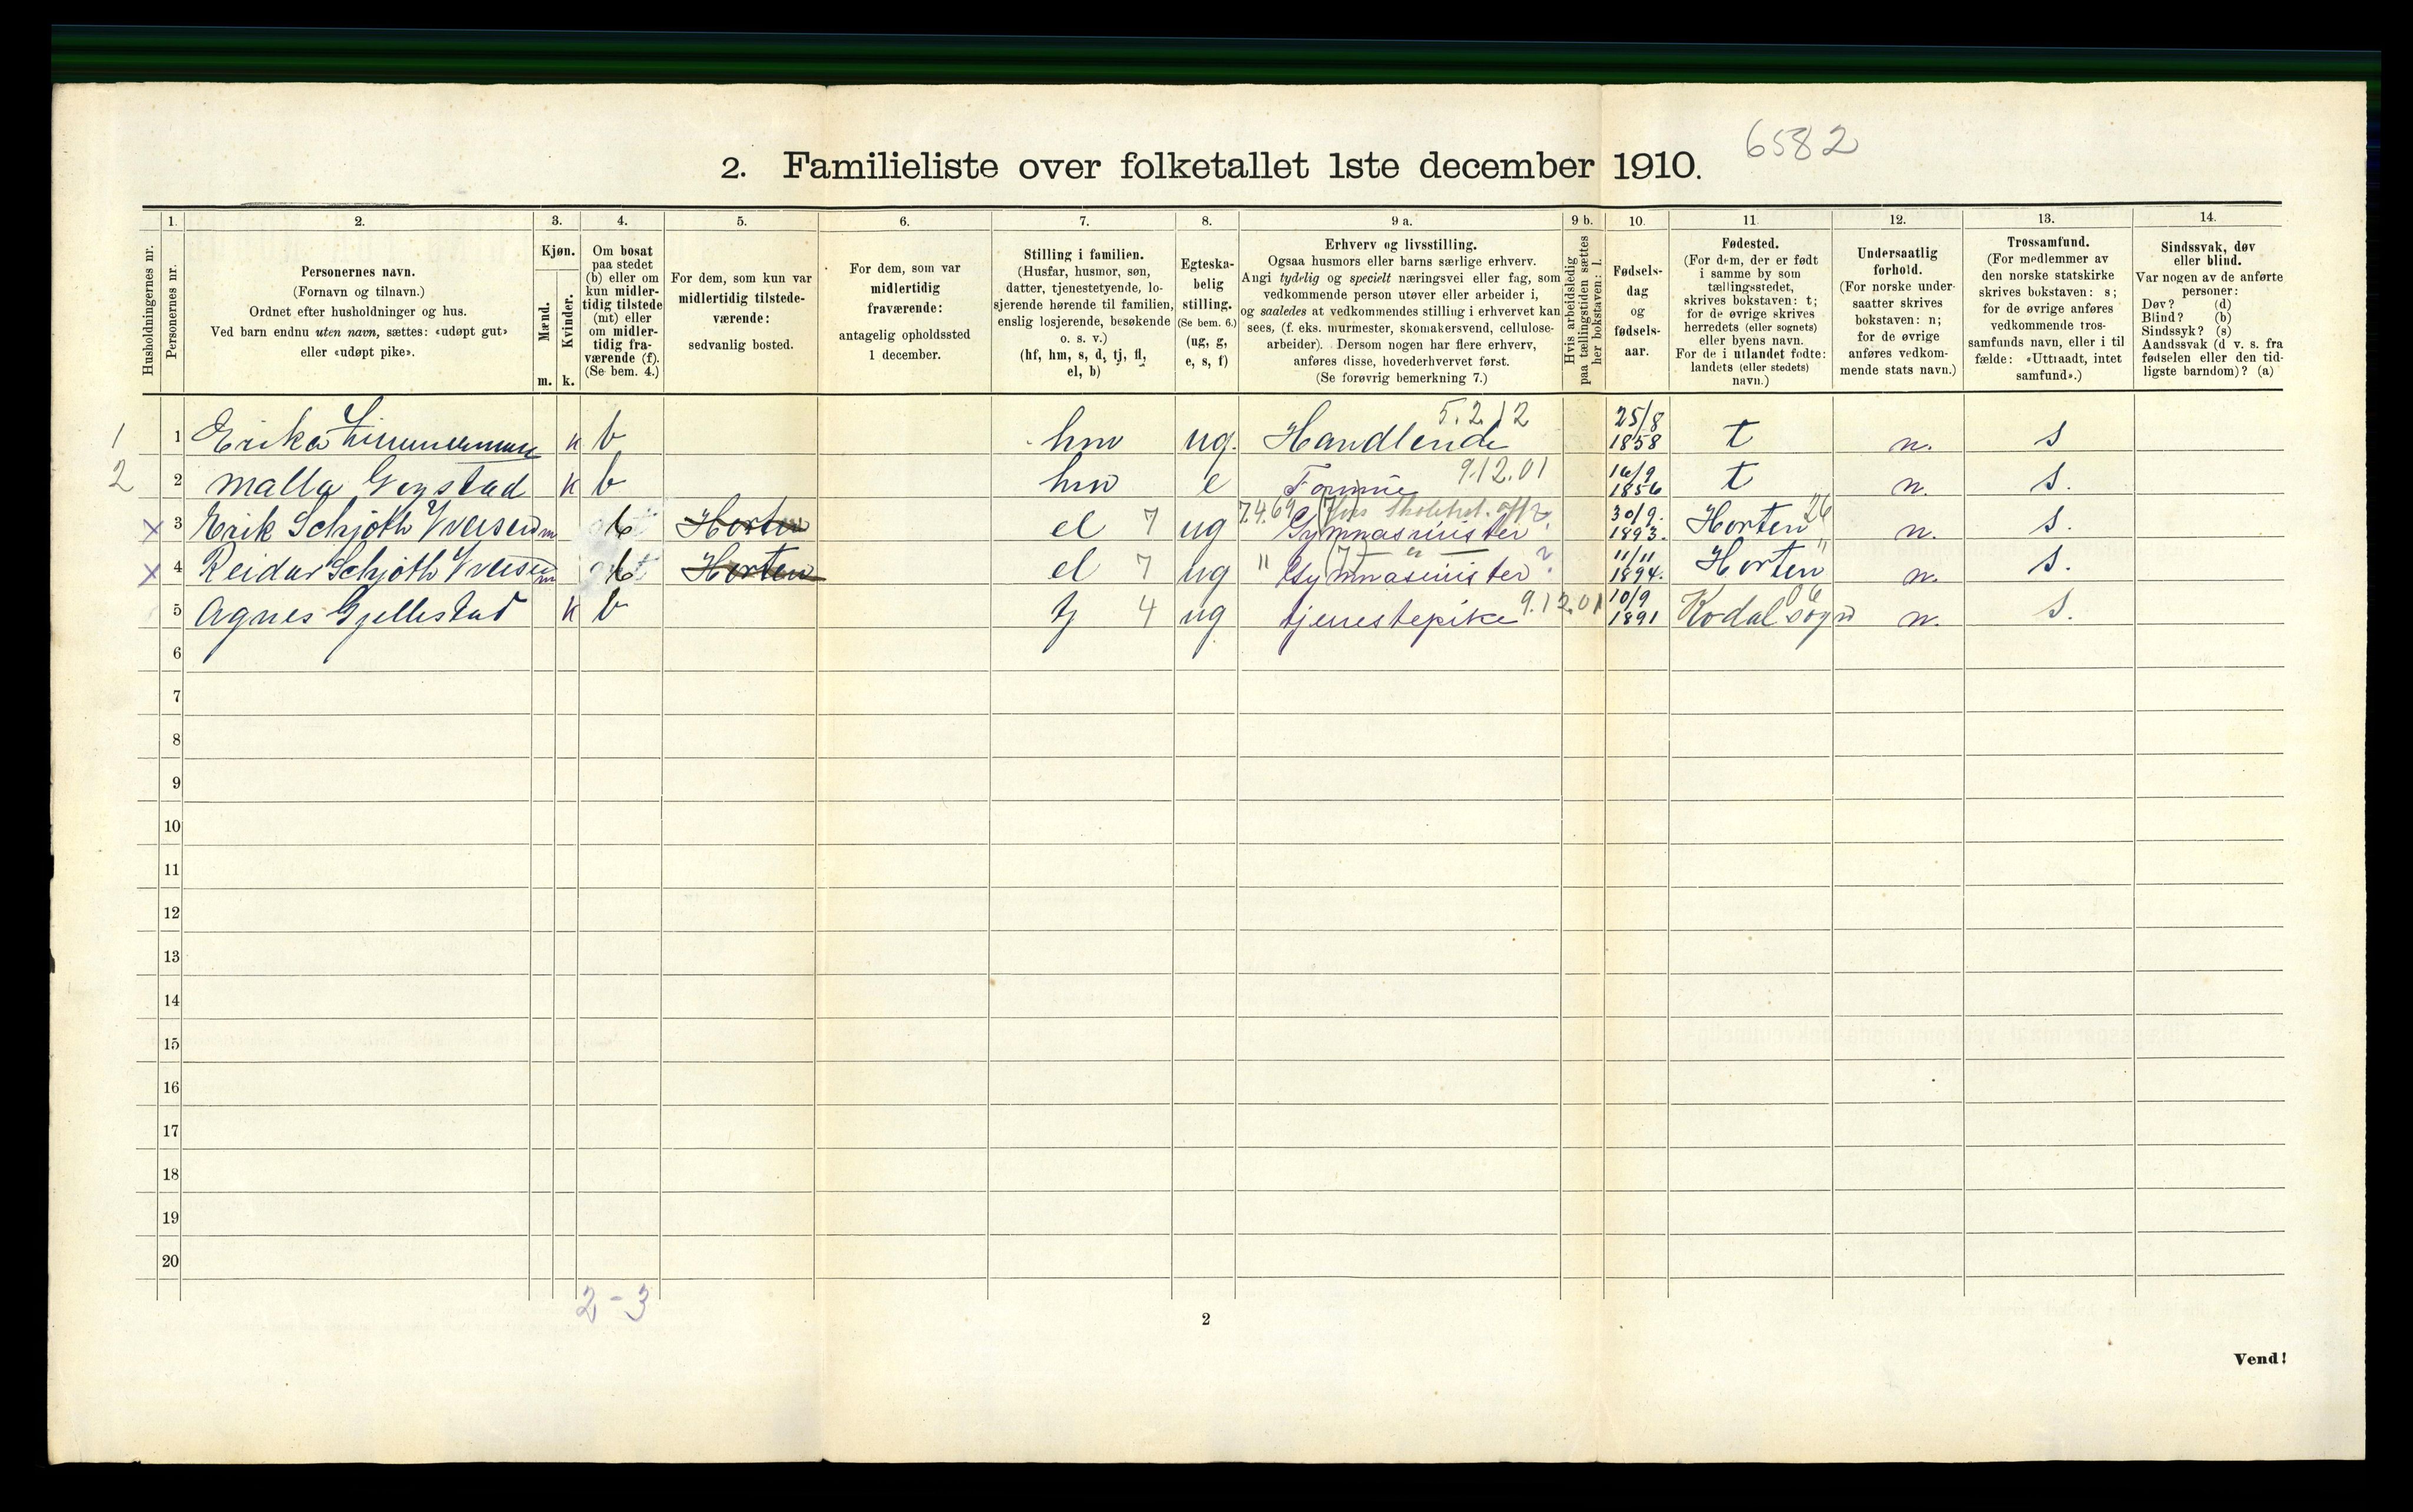 6582
2. Familieliste over folketallet 1ste december 1910.
Husholdningernes nr.
1. Personernes nr.
2. Personernes navn. (Fornavn og tilnavn.) Ordnet efter husholdninger og hus. Ved barn endnu uten navn, sættes: «udøpt gut» eller «udøpt pike».
3. Kjøn. Mænd. Kvinder. m. k.
4. Om bosat paa stedet (b) eller om kun midlertidig tilstede (mt) eller om midlertidig fraværende (f). (Se bem. 4.)
5. For dem, som kun var midlertidig tilstedeværende: sedvanlig bosted.
6. For dem, som var midlertidig fraværende: antagelig opholdssted 1 december.
7. Stilling i familien. (Husfar, husmor, søn, datter, tjenestetyende, losjerende hørende til familien, enslig losjerende, besøkende o. s. v.) (hf, hm, s, d, tj, fl, el, b)
8. Egteskabelig stilling. (Se bem. 6.) (ug, g, e, s, f)
9 a. Erhverv og livsstilling. Ogsaa husmors eller barns særlige erhverv. Angi tydelig og specielt næringsvei eller fag, som vedkommende person utøver eller arbeider i, og saaledes at vedkommendes stilling i erhvervet kan sees, (f. eks. murmester, skomakersvend, cellulosearbeider). Dersom nogen har flere erhverv, anføres disse, hovederhvervet først. (Se forøvrig bemerkning 7.)
9 b. Hvis arbeidsledig paa tællingstiden sættes her bokstaven: l.
10. Fødselsdag og fødselsaar.
11. Fødested. (For dem, der er født i samme by som tællingsstedet, skrives bokstaven: t; for de øvrige skrives herredets (eller sognets) eller byens navn. For de i utlandet fødte: landets (eller stedets) navn.)
12. Undersaatlig forhold. (For norske undersaatter skrives bokstaven: n; for de øvrige anføres vedkommende stats navn.)
13. Trossamfund. (For medlemmer av den norske statskirke skrives bokstaven: s; for de øvrige anføres vedkommende trossamfunds navn, eller i tilfælde: «Uttraadt, intet samfund».)
14. Sindssvak, døv eller blind. Var nogen av de anførte personer: Døv? (d) Blind? (b) Sindssyk? (s) Aandssvak (d v. s. fra fødselen eller den tidligste barndom)? (a)
1 1 Erika k b hm ug. Handlende 5.2.12 25/8 1858 t n. s
2 2 Malla Gogstad k b hm e Formue 9.12.01 16/9 1856 t n. s.
x 3 Erik Schjøth Iversen m b Horten el 7 ug 7.4.69 Gymnasiuister 30/9. 1893. Horten 26 n. s.
x 4 Reidar Schjøth Iversen m b Horten el 7 ug " Gymnasiuister ? 11/11 1894. Horten " n. s.
5 Agnes Gjellestad k b tj 4 ug tjenestepike 9.12.01 10/9 1891 Kodal sogn 06 n. s.
6
7
8
9
10
11
12
13
14
15
16
17
18
19
20
2-3
2
Vend!